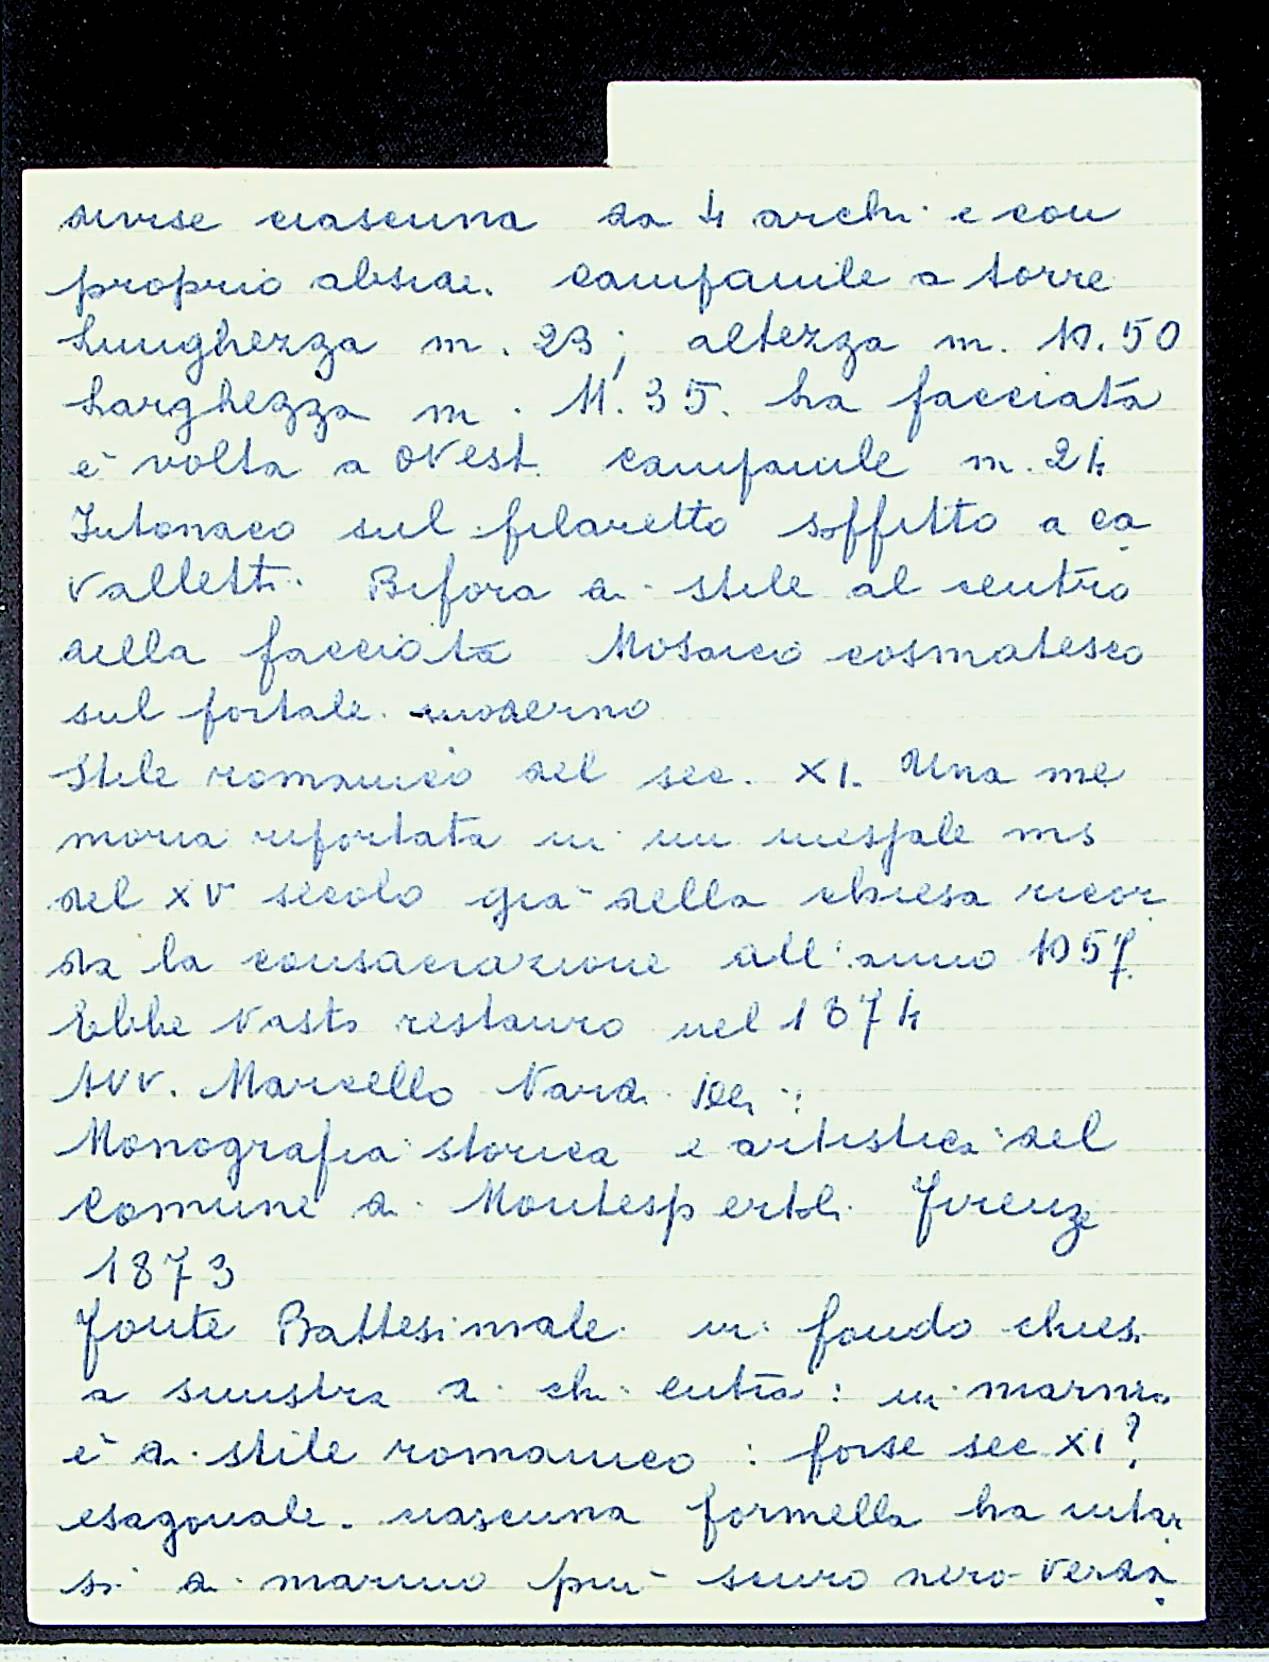 divise ciascuna da 4 archi e con
proprio abside. Campanile a torre
Lunghezza m. 23; altezza m. 10.50
Larghezza m. 11.35. La facciata
è volta a OVest. Campanile m. 24
Intonaco sul filaretto soffitto a ca
valletti. Bifora di stile al centro
della facciata Mosaico cosmatesco
sul portale moderno
Stile romanico del sec. XI. Una me
moria riportata in un messale ms
del XV secolo già della chiesa ricor
da la consacrazione all'anno 1057.
Ebbe vasto restauro nel 1874
Avv. Marcello Nardi Dei:
Monografia storica e artistica del
Comune di Montespertoli. Firenze
1873
Fonte Battesimale in fondo chiesa
a sinistra di chi entra: in marmo
è di stile romanico: forse sec XI?
esagonale. ciascuna formella ha intar
si di marmo più scuro nero-verda